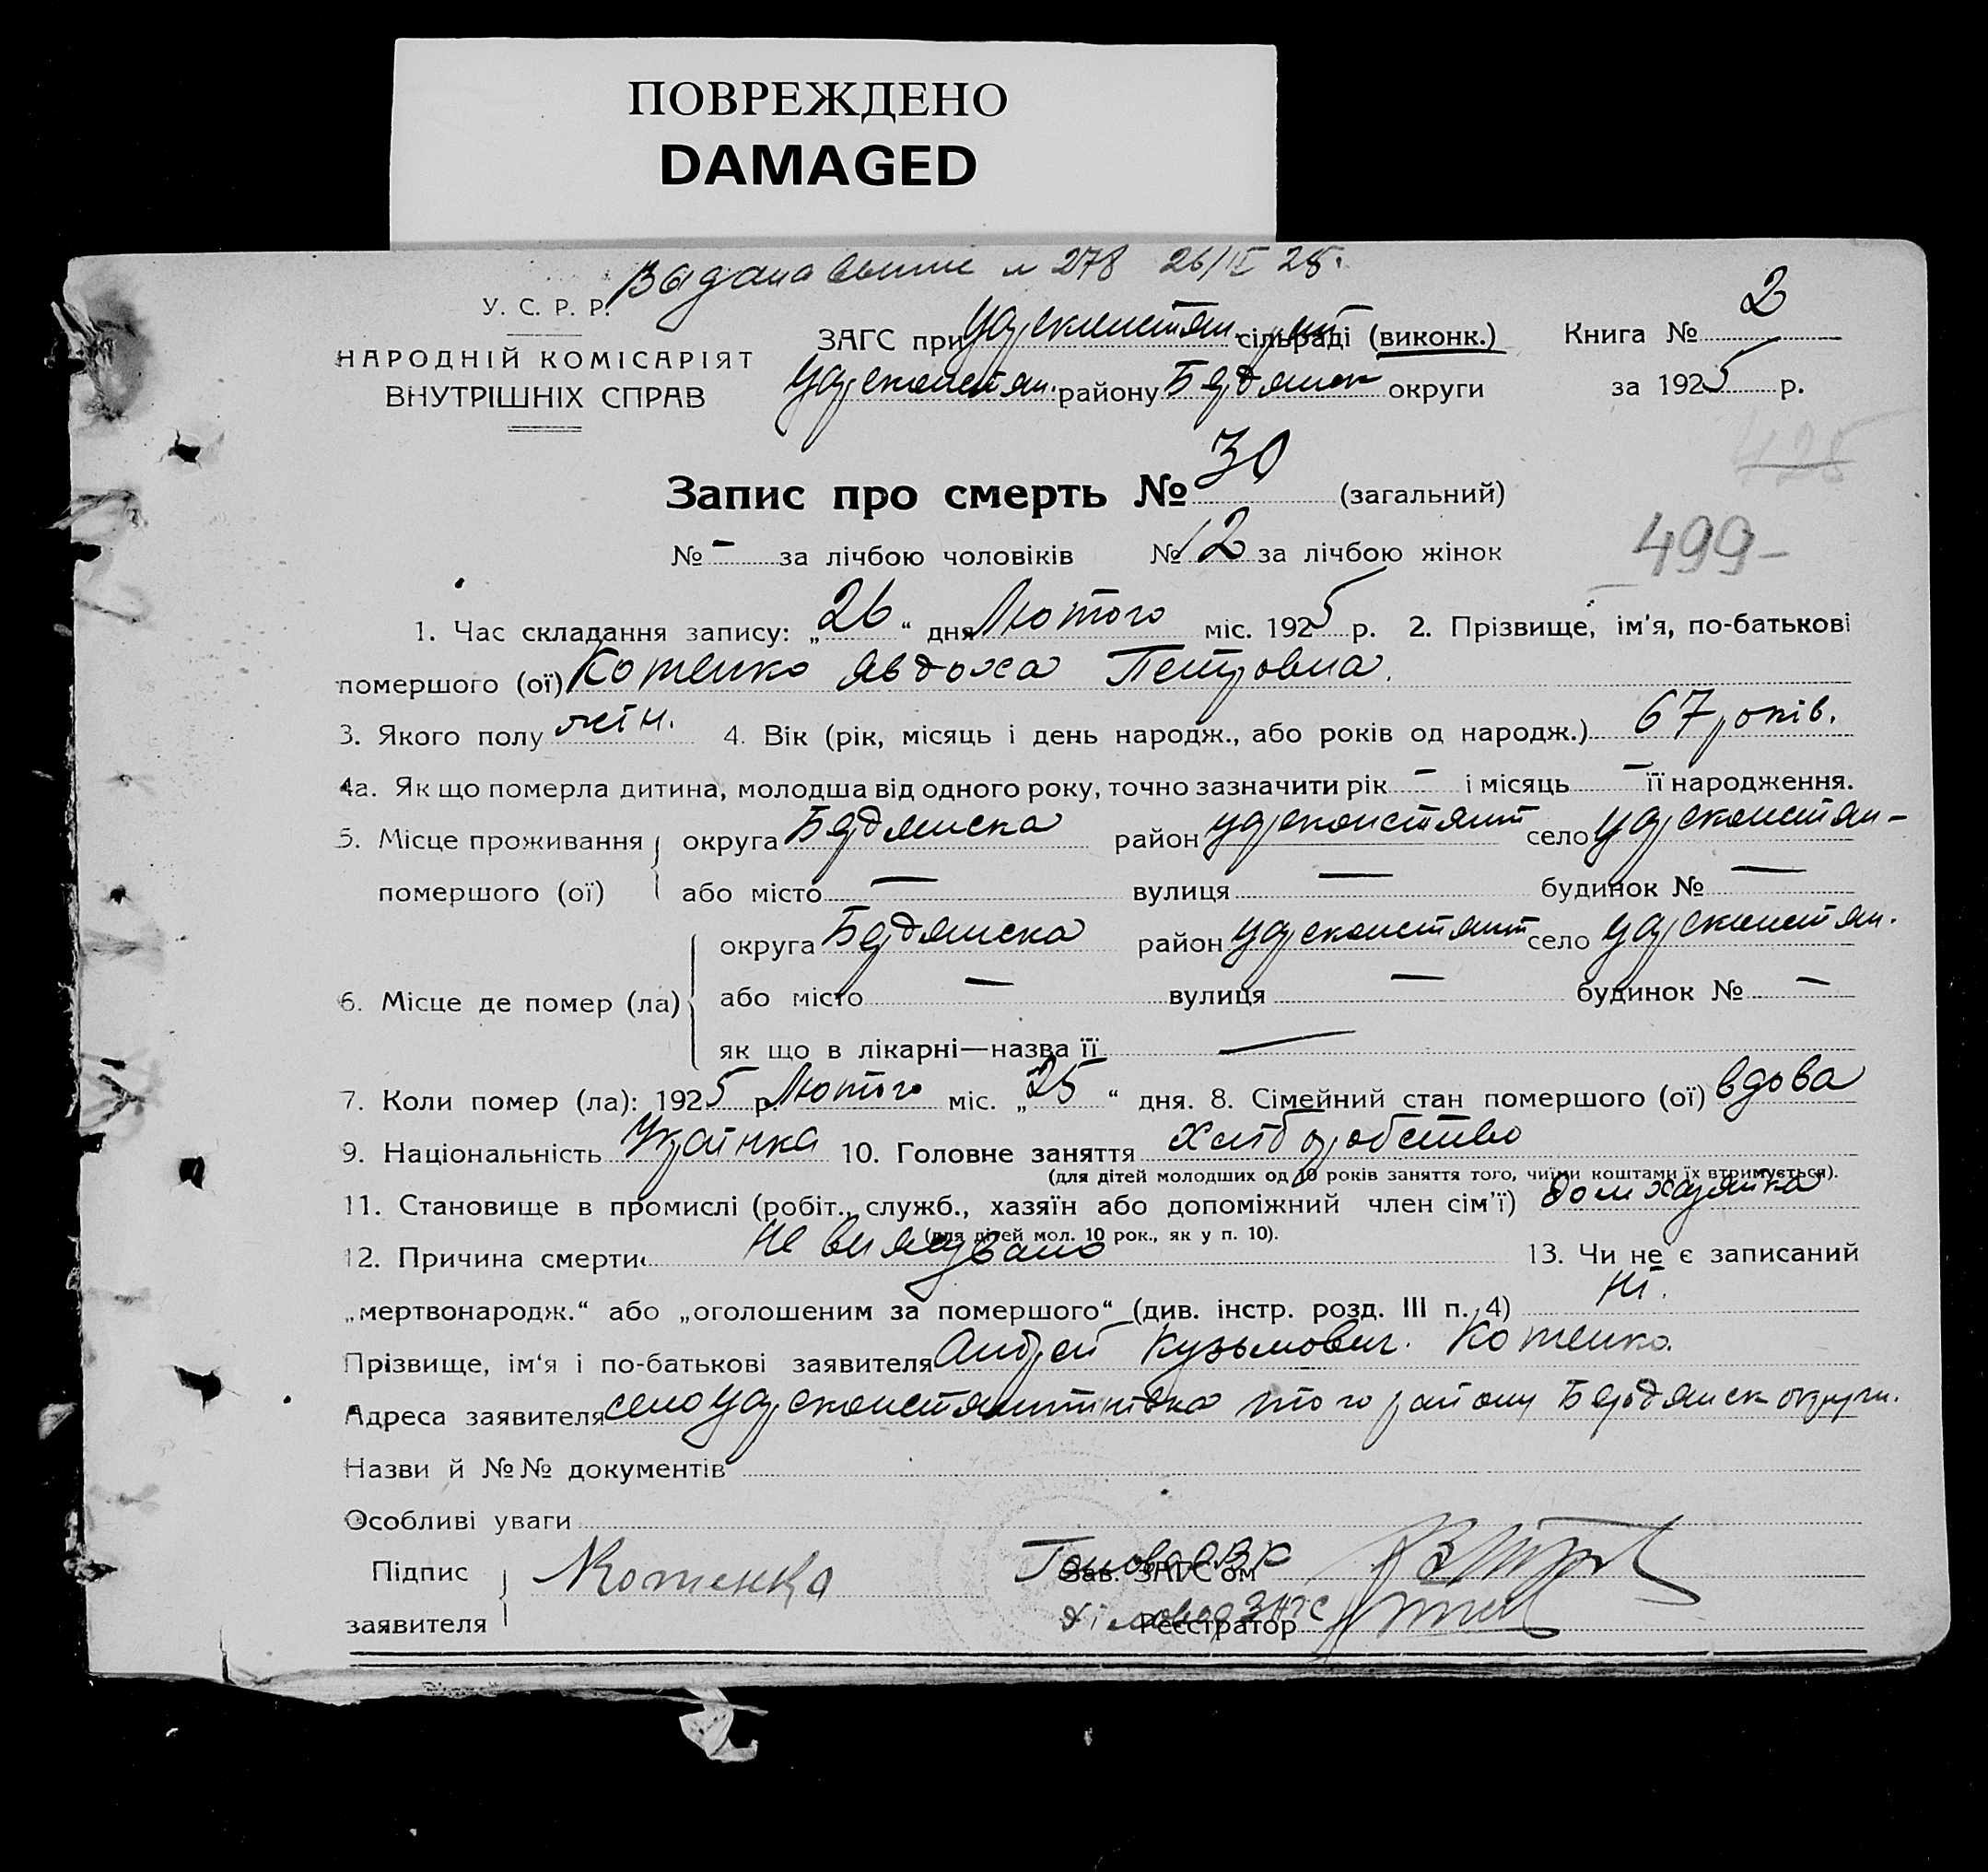 ПОВРЕЖДЕНО
DAMAGED
Выдана № 278 26/II 25.
У. С. Р. Р.
НАРОДНІЙ КОМІСАРІЯТ
ВНУТРІШНІХ СПРАВ
ЗАГС при Царсконстян. сільраді (виконк.)
Царсконстян. району Бердянськ округи
Книга № 2
за 1925 р.
425
Запис про смерть № 30 (загальний)
№ – за лічбою чоловіків № 12 за лічбою жінок
499–
1. Час складання запису: „26“ дня Лютого міс. 1925 р. 2. Прізвище, ім'я, по-батькові
помершого (ої) Котенко Явдоха Петровна.
3. Якого полу жін. 4. Вік (рік, місяць і день народж., або років од народж.) 67 років.
4а. Як що померла дитина, молодша від одного року, точно зазначити рік – і місяць – її народження.
5. Місце проживання округа Бердянска район Царсконстянт село Царсконстян–
помершого (ої) або місто – вулиця – будинок № –
округа Бердянска район Царсконстянт село Царсконстян.
6. Місце де помер (ла) або місто – вулиця – будинок № –
як що в лікарні—назва її –
7. Коли помер (ла): 1925 р. Лютого міс. „25“ дня. 8. Сімейний стан помершого (ої) вдова
9. Національність Українка 10. Головне заняття Хліборобство
(для дітей молодших од 10 років заняття того, чиїми коштами їх втримується).
11. Становище в промислі (робіт., служб., хазяїн або допоміжний член сім'ї) домхазяйка
(для дітей мол. 10 рок., як у п. 10).
12. Причина смерти Не виліковано 13. Чи не є записаний
„мертвонародж.“ або „оголошеним за помершого“ (див. інстр. розд. III п. 4) ні.
Прізвище, ім'я і по-батькові заявителя Андрей Кузьмович. Котенко.
Адреса заявителя село Царсконстянтинівка того району Бердянськ округи.
Назви й №№ документів
Особливі уваги
Підпис Котенко Голова ВР Зав. ЗАГС'ом
заявителя Діловод ЗАГС Реєстратор